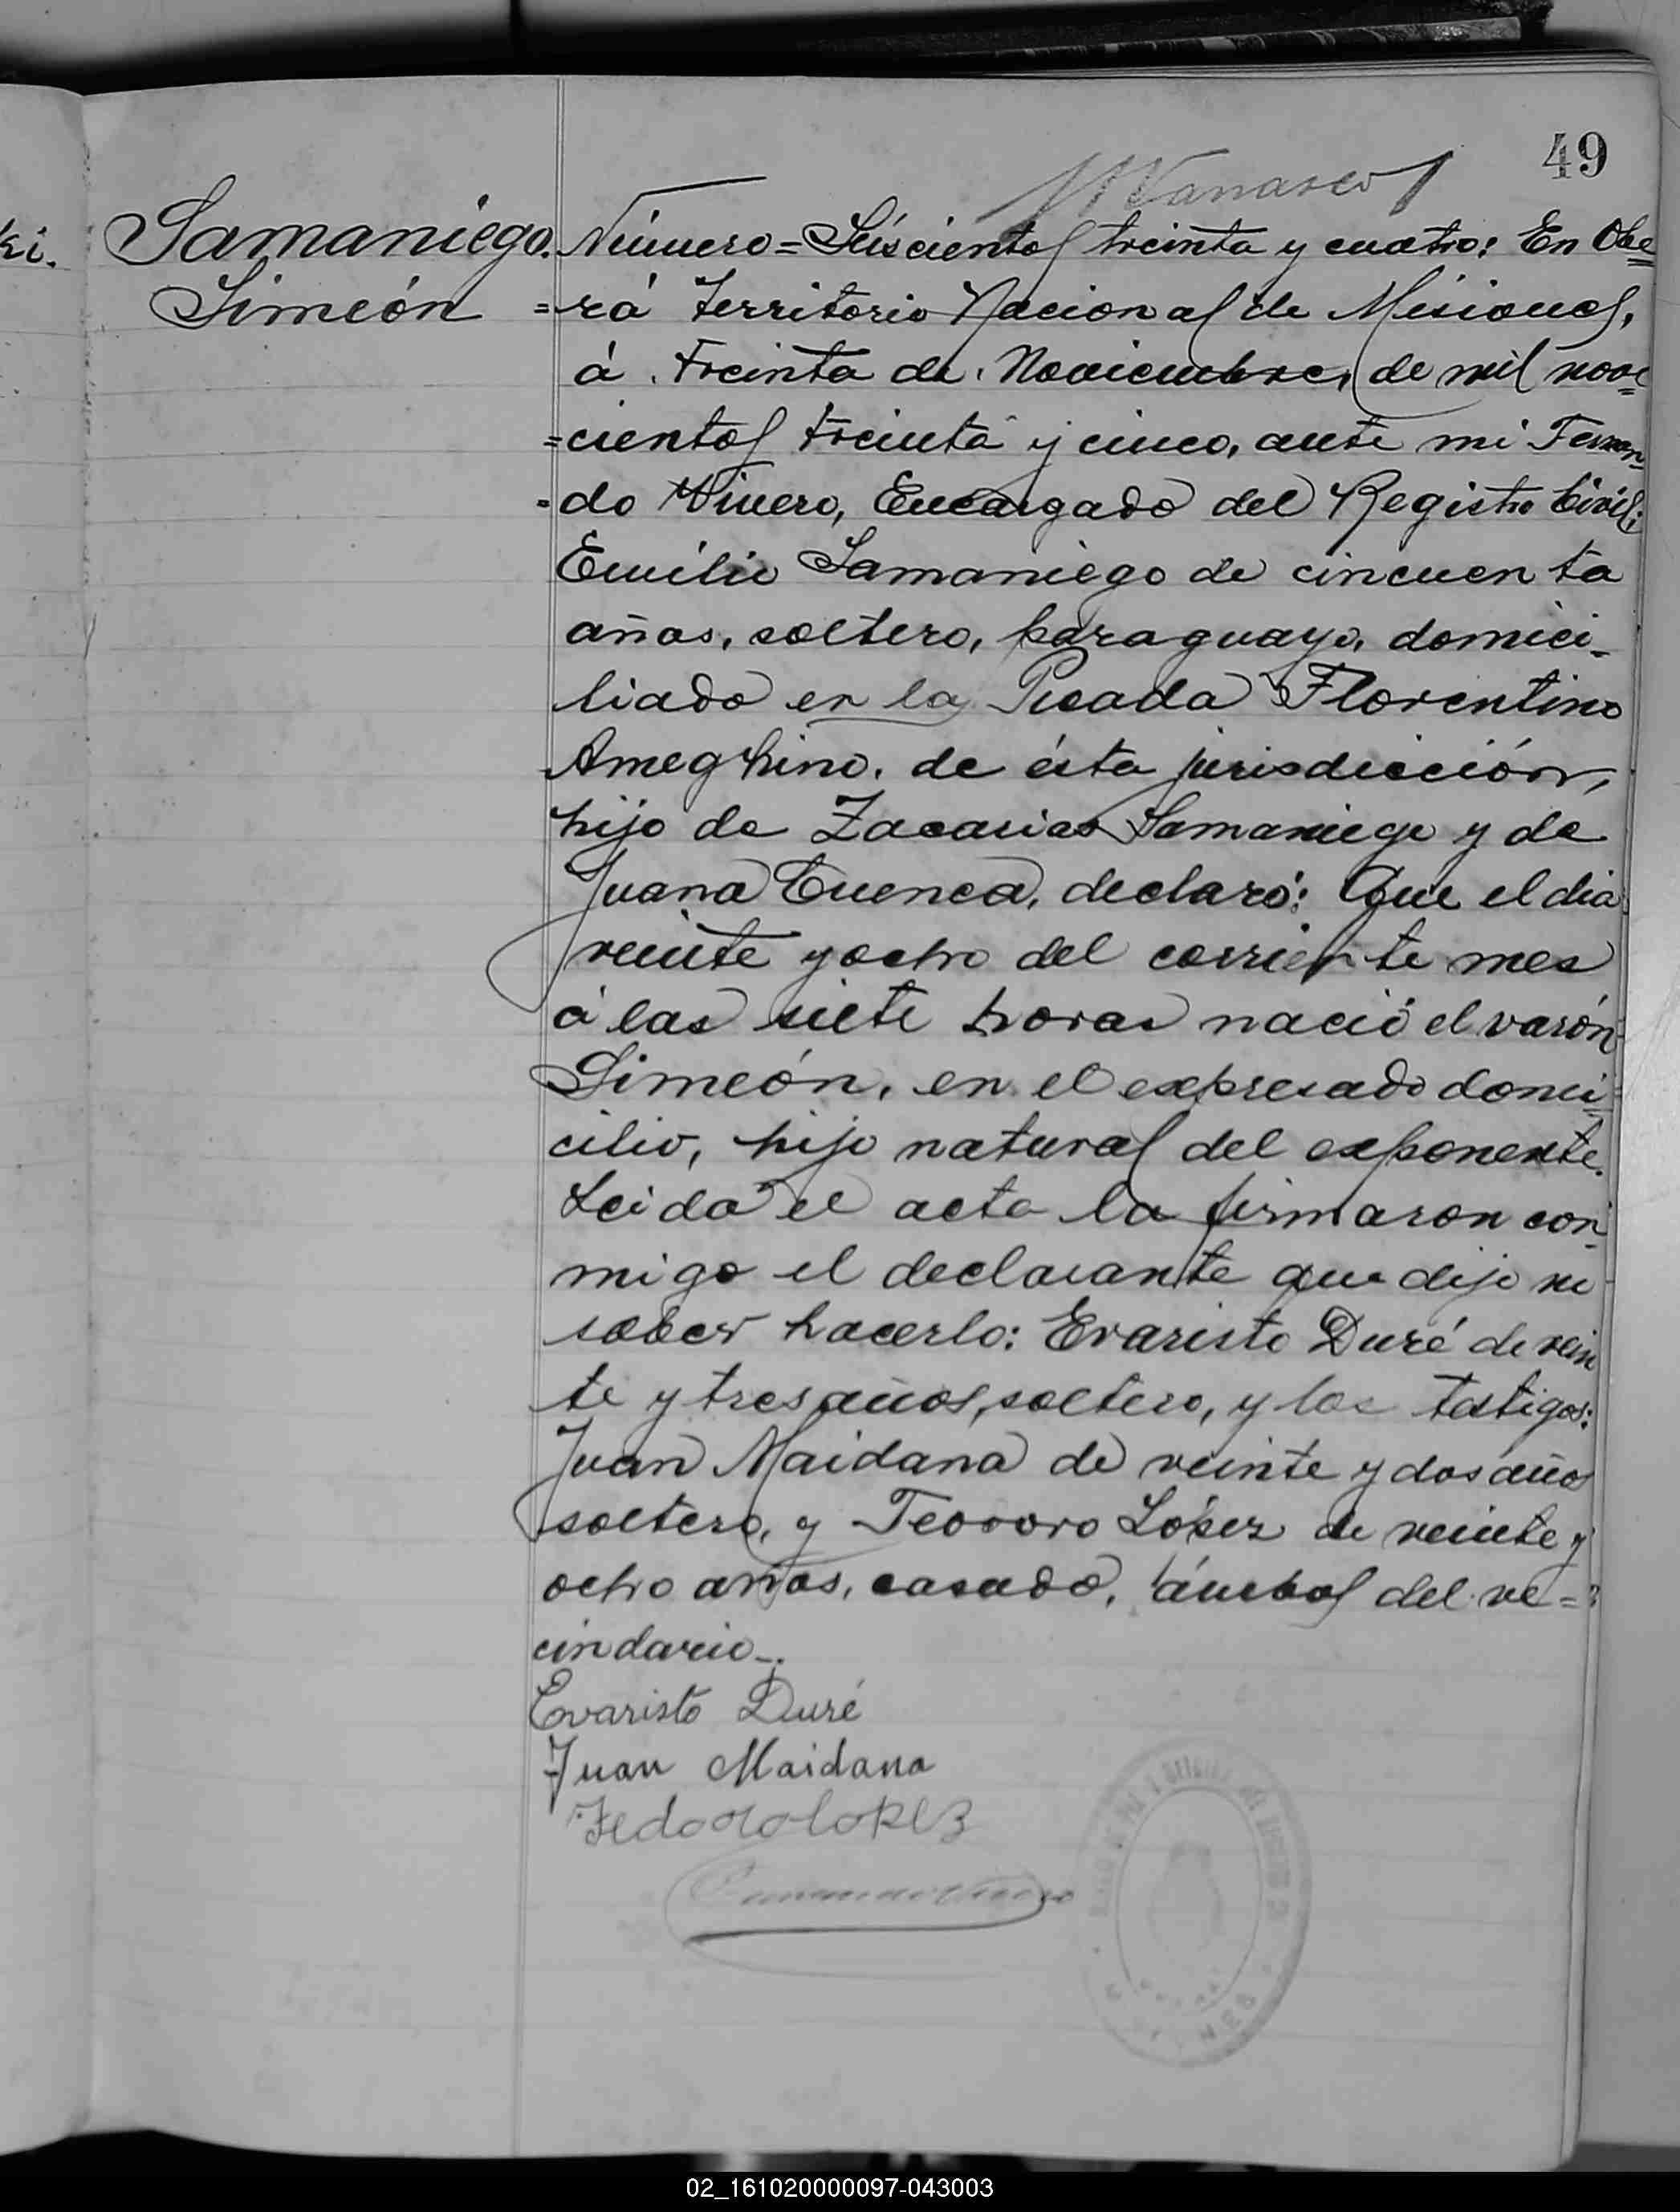 49
ki.
Samaniego.
Simeón
Número = Seiscientos treinta y cuatro: En Obe=
=rá Territorio Nacional de Misiones,
á treinta de Noviembre, de mil nove=
=cientos treinta y cinco, ante mi Fernan=
=do Vivero, Encargado del Registro Civil:
Emilio Samaniego de cincuenta
años, soltero, paraguayo, domici-
liado en la Picada Florentino
Ameghino, de ésta jurisdicción,
hijo de Zacarias Samaniego y de
Juana Cuenca, declaró: Que el dia
veinte y ocho del corriente mes
á las siete horas nació el varón
Simeón, en el expresado domi=
cilio, hijo natural del exponente.
Leida el acta la firmaron con-
migo el declarante que dijo no
saber hacerlo: Evaristo Duré de vein
te y tres años, soltero, y los testigos:
Juan Maidana de veinte y dos años
soltero, y Teodoro López de veinte y
ocho años, casado, ámbos del ve=
cindario-.
Evaristo Duré
Juan Maidana
Tedoro lopez
02_161020000097-043003